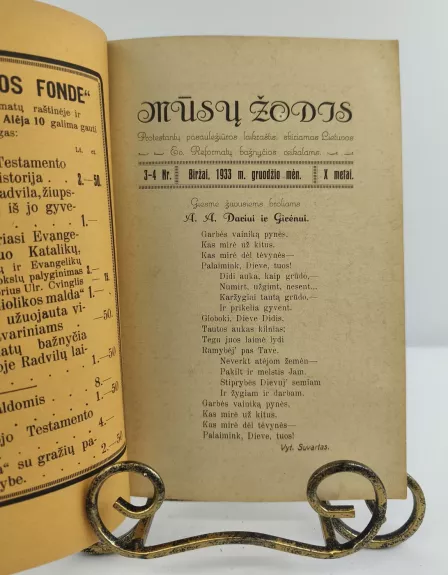 OS FONDE"
matų raštinėje ir
Alėja 10 galima gauti
gas:
Lt. ct.
Testamento
istorija . 2.—50.
advila, žiups-
iš jo gyve-
. . . 1.—
riasi Evange-
uo Katalikų,
ų ir Evangelikų
okslų palyginimas 1.—
orius Ulr. Cvinglis
iolikos malda" 1.—
užuojauta vi
svariniams
. . . —50.
matų bažnyčia
oje Radvilų lai-
. . . 1.—50.
8.—
aldomis . 1.—50
ejo Testamento
. . . 4.—
ą" su gražių pa-
ybe. . . 2.—50
MŪSŲ ŽODIS
Protestantų pasaulėžiūros laikraštis, skiriamas Lietuvos
Ev. Reformatų bažnyčios reikalams.
3-4 Nr. Biržai, 1933 m. gruodžio mėn. X metai.
A. A. Dariui ir Girėnui.
Garbės vainiką pynės,
Kas mirė už kitus,
Kas mirė dėl tėvynės—
Palaimink, Dieve, tuos!
Didi auka, kaip grūdo,—
Numirt, užgimt, nesent...
Karžygiai tautą grūdo,—
Ir prikelia gyvent.
Globoki, Dieve Didis,
Tautos aukas kilnias:
Tegu juos laimė lydi
Ramybėj' pas Tave.
Neverkt atėjom žemėn—
Pakilt ir melstis Jam.
Stiprybės Dievuj' semiam
Ir žygiam ir darbam.
Garbės vainiką pynės,
Kas mirė už kitus,
Kas mirė dėl tėvynės—
Palaimink, Dieve, tuos!
Vyt. Suvartas.